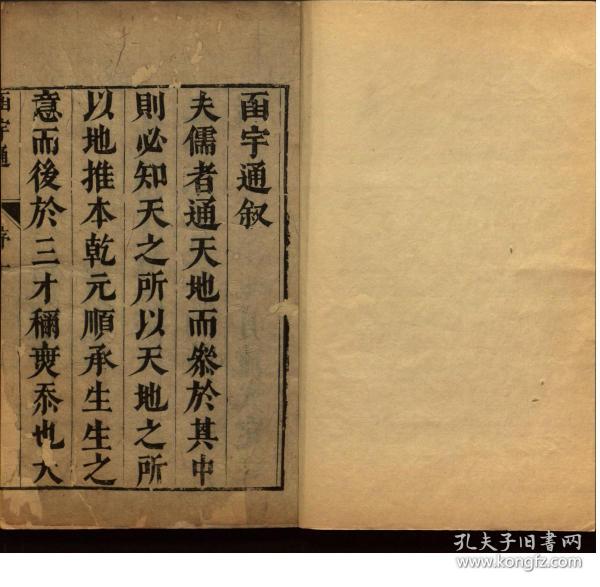 圅宇通叙
夫儒者通天地而叅於其中
則必知天之所以天地之所
以地推本乾元順承生生之
意而後於三才稱㒵忝也大
圅宇通
序一
孔夫子旧書网
www.kongfz.com